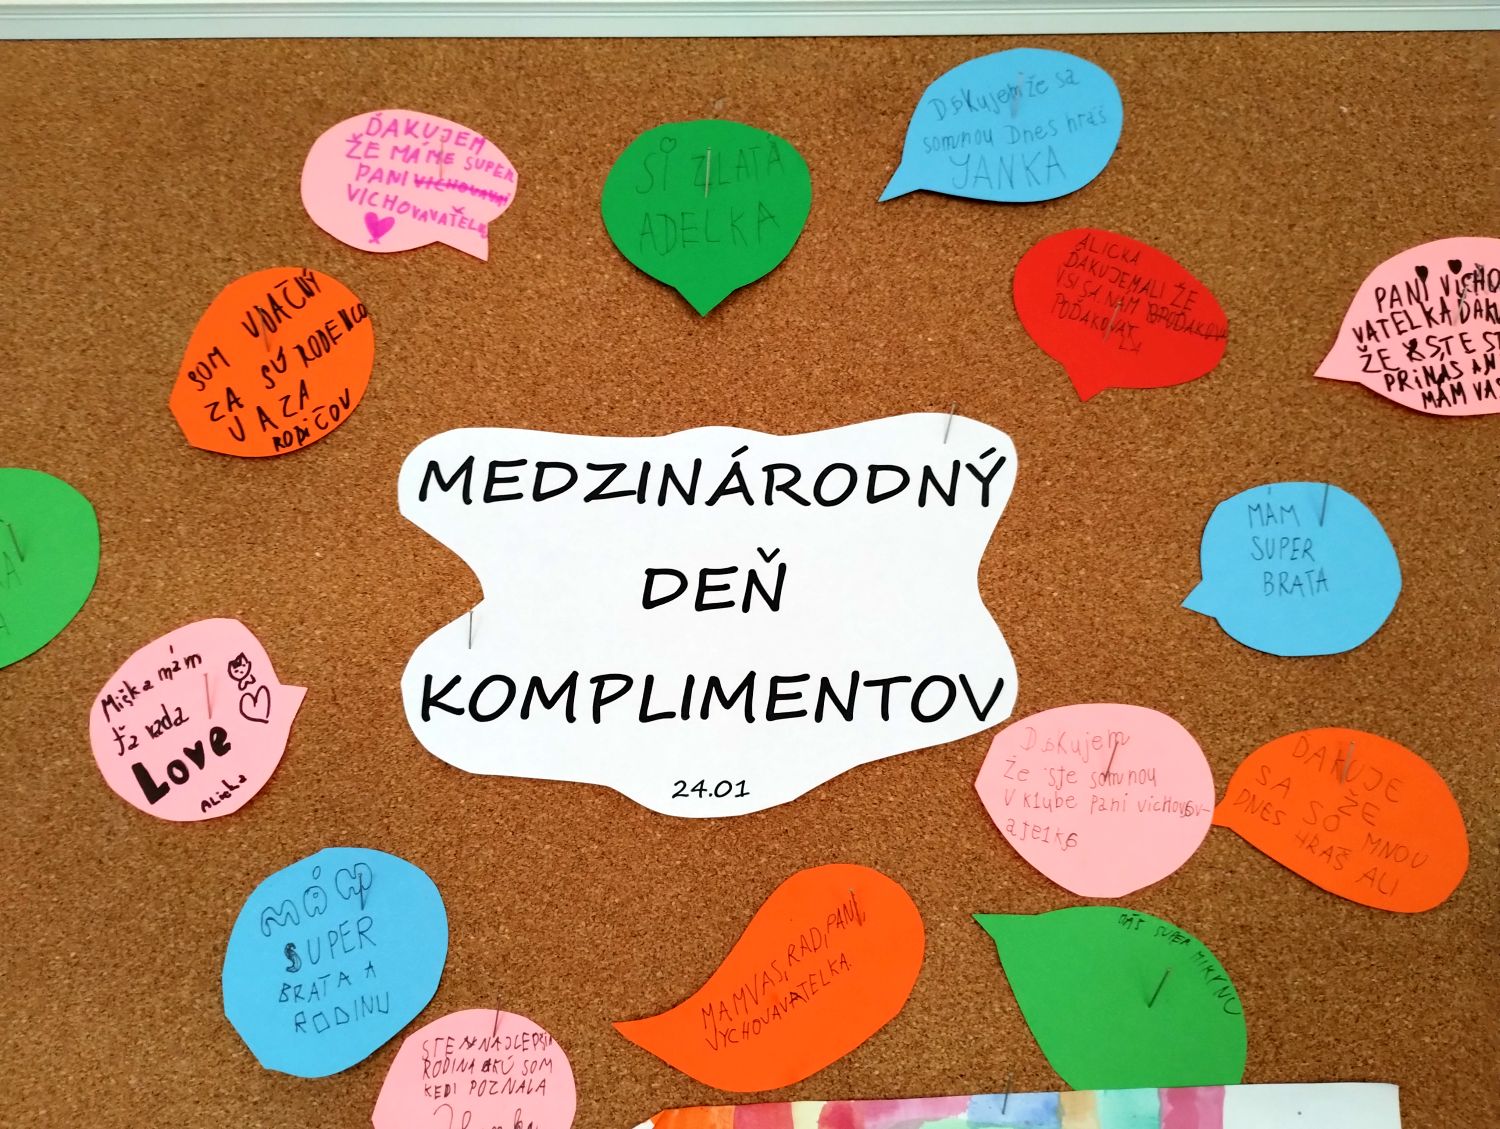 ĎAKUJEM
ŽE MÁME SUPER
PANI
VICHOVAVATEĽK
SI ZLATÁ
ADELKA
Ďakujem že sa
somnou Dnes hráš
JANKA
SOM VĎAČNÝ
ZA SÚRODENCO
V A ZA
RODIČOV
ALICKA
ĎAKUJEMALI ŽE
VSI SA NÁM
POĎAKOVAŤ
PANI VICHO
VATELKA ĎAKU
ŽE STE ST
PRINAS A
MÁM VAS
MEDZINÁRODNÝ
DEŇ
KOMPLIMENTOV
24.01
MÁM
SUPER
BRATA
Miška mám
ťa rada
Love
Alicka
Ďakujem
že ste somnou
v klube pani vichovov-
ateľka
ĎAKUJE
SA ŽE
SO MNOU
DNES HRÁŠ ALI
MÁM
SUPER
BRATA A
RODINU
MAMVAS, RAD, PANI,
VYCHOVAVATELKA.
MÁŠ SUPER MIKYNU
STE NAJLEPŠIA
RODINA AKÚ SOM
KEDI POZNALA